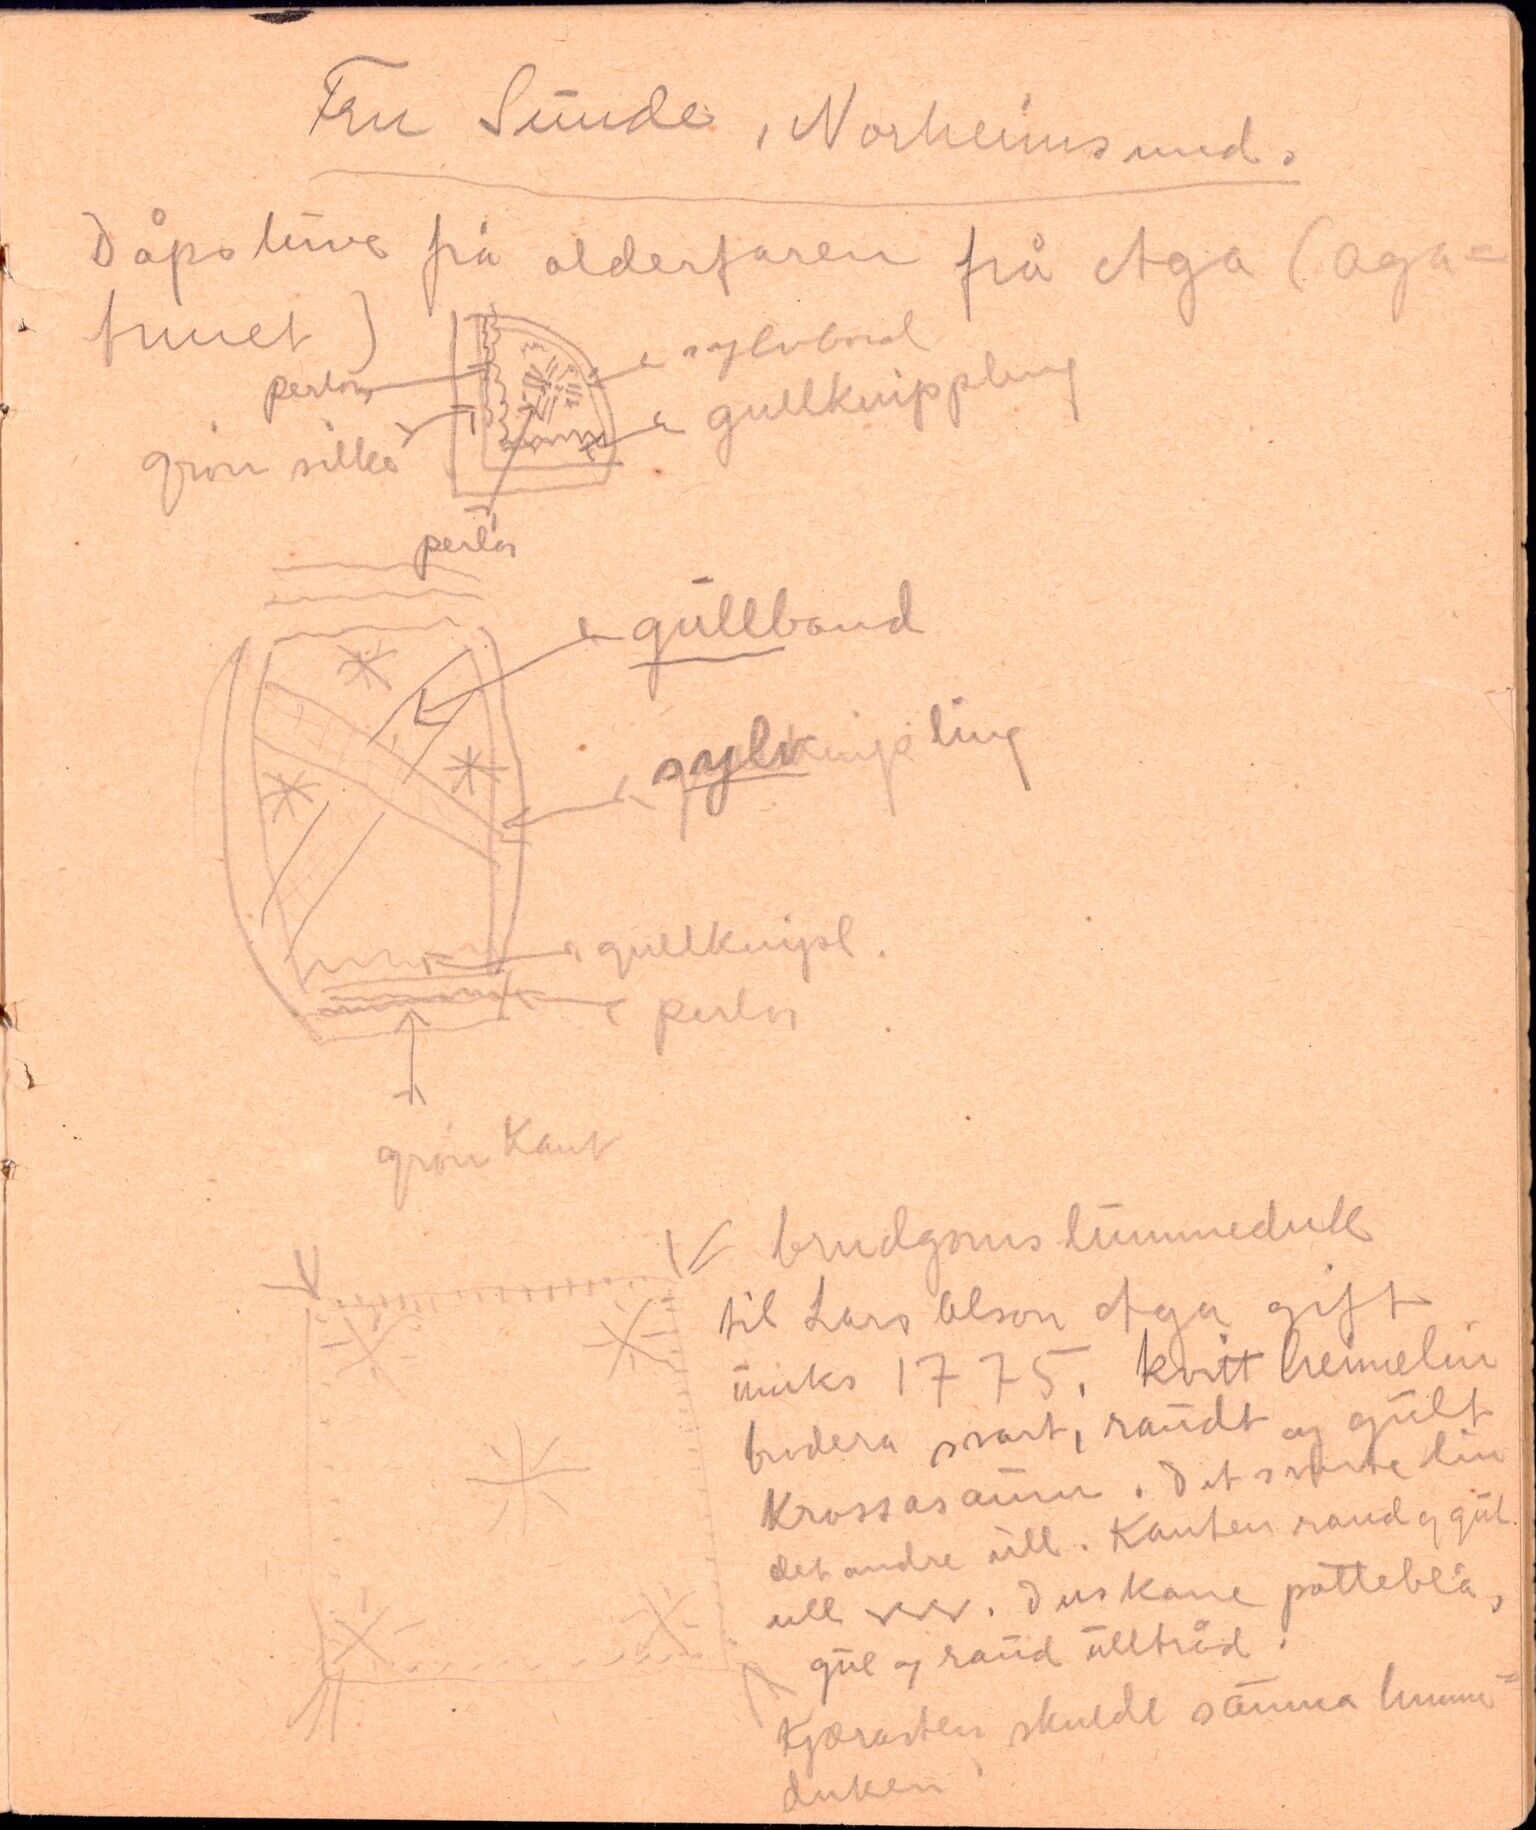 Fru Sunde, Norheimsund.
Dåpsluve frå olderfaren frå Aga (Aga=
tunet)
sylvband
perlor
gullknippling
grön silke
perlor
gullband
sylvknipling
gullknipl.
perlor
grön Kant
brudgomslummeduk
til Lars Olson Aga gift
umks 1775. kvitt heimelin
brodera svart, raudt og gult
Krossasaum. Det svarte lin
det andre ull. Kanten raud og gul
ull. Duskane potteblå,
gul og raud ulltråd.
Kjærasten skulde sauma lumme=
duken